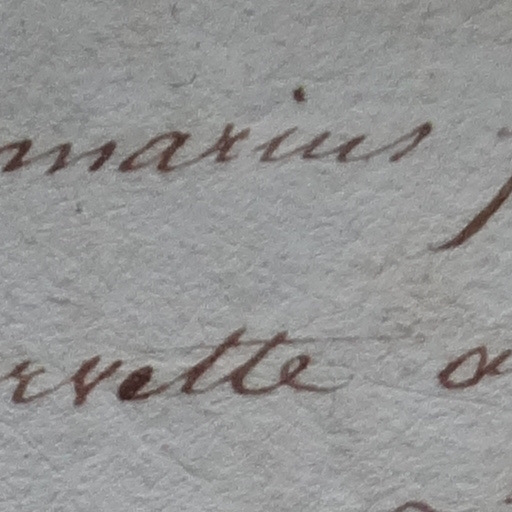 marius
rvette